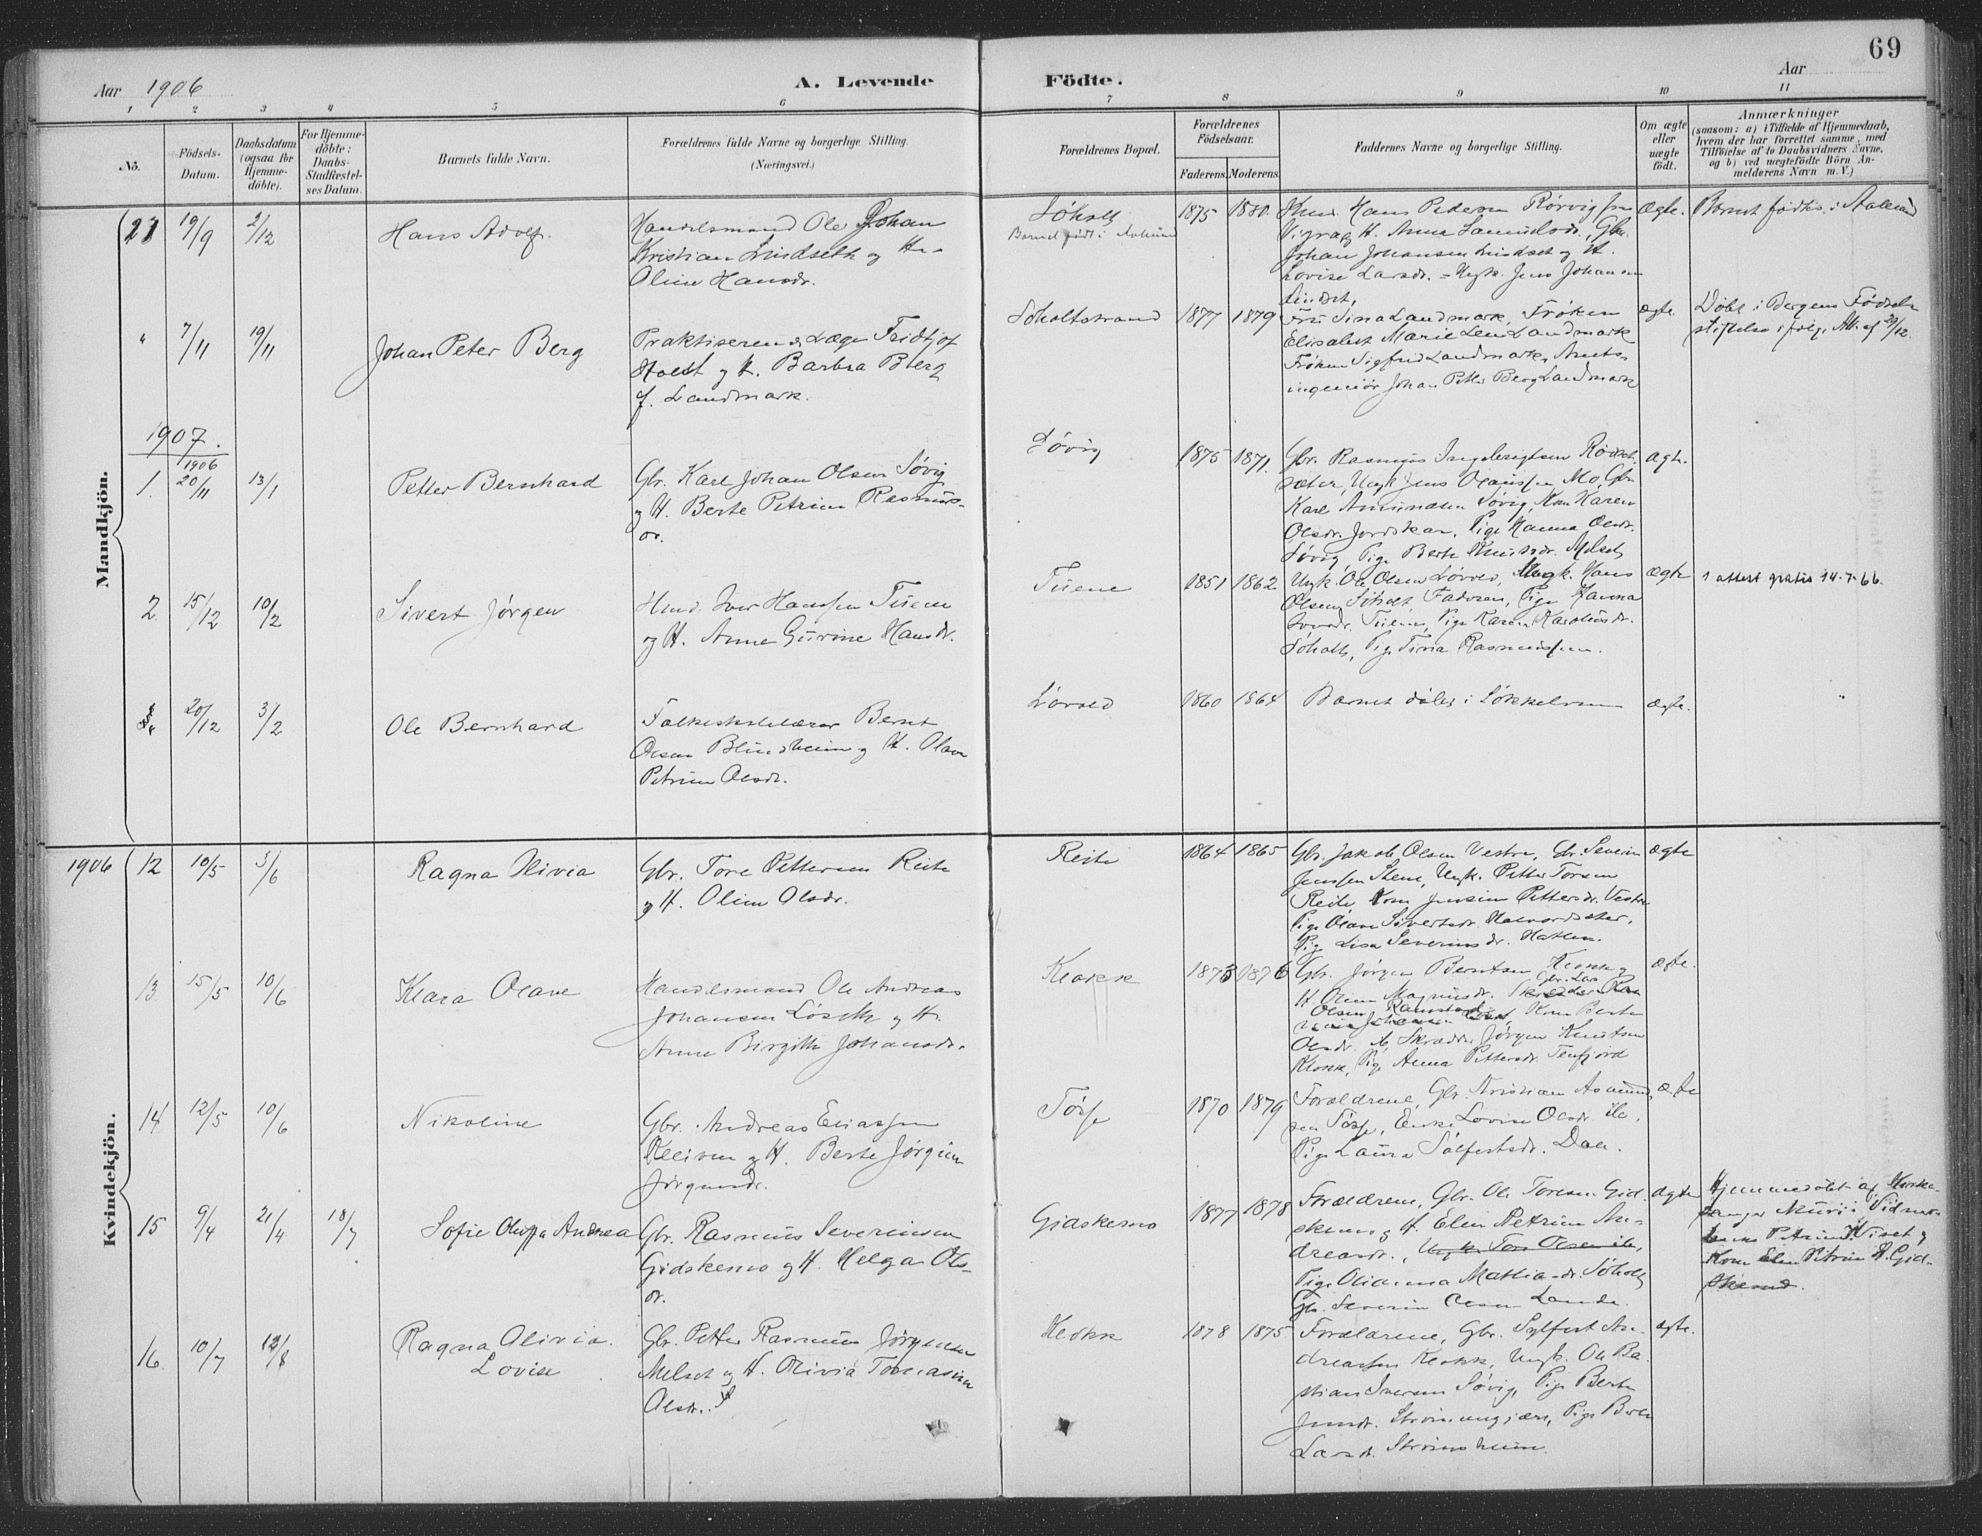 69
Aar 1906
A. Levende
Födte.
Aar
1 2 3 4 5 6 7 8 9 10 11
No.
Födsels-
Datum.
Daabsdatum
(ogsaa for
Hjemme-
döbte).
For Hjemme-
döbte:
Daabs-
Stadfæstel-
ses Datum.
Barnets fulde Navn.
Forældrenes fulde Navne og borgerlige Stilling.
(Næringsvei.)
Forældrenes Bopæl.
Forældrenes
Födselsaar.
Faderens. Moderens.
Faddernes Navne og borgerlige Stilling.
Om ægte
eller
uægte
födt.
Anmærkninger
(saasom: a) i Tilfælde af Hjemmedaab,
hvem der har forrettet samme, med
Tilföielse af to Daabsvidners Navne,
og b) ved uægtefödte Börn An-
melderens Navn m. V.)
Mandkjön.
19/9 2/12
Hans Adolf.
Handelsmand Ole Johan
Kristian Lindseth og H.
Oline Hansdr.
Søholt
Barnet født i Aalesund
1875 1880.
Hans Pedersen Rørvig
Vigra og H. Anna Samuelsdr., Gbr.
Johan Johansen Lindset og H.
Lovise Larsdr. - Ungk. Jens Johansen
Lindset.
Ægte.
Barnet fødtes i Aalesund
" 7/11 19/11
Johan Peter Berg
Praktiserende Læge Fridtjof
Holst og H. Barbra Berg
f. Landmark.
Søholtstrand
1877 1879
Fru Sina Landmark, Frøken
Elisabet Marie Lem Landmark
Frøken Sigfrid Landmark, Amts-
ingeniør Johan Peter Berg Landmark
ægte.
Døbt i Bergens Fødsels-
stiftelse ifølg. Att. af 20/12.
1907.
1906
1. 20/11 13/1
Petter Bernhard
Gbr. Karl Johan Olsen Søvig
og H. Berte Petrine Rasmus-
dr.
Søvig
1875 1871.
Gbr. Rasmus Ingebrigtsen Rødset-
sæter, Ungk. Jens Olaussen Mo, Gbr.
Karl Amundsen Søvig, Kone Karen
Olsdr. Jordskar, Pige Hanna Olsdr.
Søvig, Pige Berte Knutsdr. Melset
ægte.
2. 15/12 10/2
Sivert Jørgen
Hmd. Iver Hanssen Tuene
og H. Anne Gurine Hansdr.
Tuene
1851 1862
Ungk. Ole Olsen Løvold, Ungk. Hans
Olsen Søholt, Pige Hanna
Iversdr. Tuene, Pige Karen Karolusdr.
Søholt, Pige Rasmussen.
ægte
1 attest gratis 14.7.66.
20/12 3/2
Ole Bernhard
Folkeskolelærer Bernt
Olsen Blindheim og H. Olave
Petrine Olsdr.
Løvold
1860 1864
Barnet døbes i Søkkelven
ægte.
Kvindekjön.
1906 12 10/5 3/6
Ragna Olivia
Gbr. Tore Pettersen Reite
og H. Oline Olsdr.
Reite
1864 1865
Gbr. Jakob Olsen Vestre, Gbr. Severin
Jenssen Stene, Ungk. Petter Torsen
Reite, Kone Jensine Pettersdr. Vestre
Pige Olave Sivertsdr. Halvordsæter,
Pige Lisa Severinsdr. Hatlen.
ægte
13. 15/5 10/6
Klara Olave
Handelsmand Ole Andreas
Johansen Løseth og H.
Anne Birgithe Johansdr.
Klokk
1873 1876
Gbr. Jørgen Berntsen Klokk og
H. Oline Magnusdr. Gbr. Lars
Olsen Ramstad, Kone Berte
Olsdr. Skrædder Jørgen Knutsen
Klokk, Pige Anna Pettersdr. Tenfjord
ægte.
14. 12/5 10/6
Nikoline
Gbr. Andreas Eliassen
Kleiven og H. Berte Jørgine
Jørgensdr.
Tøsse
1870 1879
Forældrene, Gbr. Kristian Asmund-
sen Tøsse, Enke Lovise Olsdr. ib.
Pige Laura Sølfestsdr. Dale.
ægte
15 9/4 21/4 18/7
Sofie Olufa Andrea
Gbr. Rasmus Severinsen
Gidskemo og H. Helga Ols-
dr.
Gidskemo
1877 1878
Forældrene, Gbr. Ole Toresen Gid-
skemo og H. Elen Petrine An-
dreasdr., Ungk. Tore Olsen ib,
Pige Olianna Mathiasdr. Søholt
Gbr. Severin Olsen Lande.
ægte
Hjemmedøbt af Kirke-
sanger Muri. Vidner
Petrine Viset og
Kone Elen Petrine A. Gid-
skemo.
16. 10/7 12/8
Ragna Olivia
Lovise
Gbr. Petter Rasmus Jørgensen
Melset og H. Olivia Tomasine
Olsdr.
Klokk
1878 1875
Forældrene, Gbr. Sylfest An-
dreassen Klokk, Ungk. Ole Ba-
stian Iversen Søvig, Pige Berte
Jensdr. Strømmegjære, Pige Berte
Larsdr. Strømsheim.
ægte.